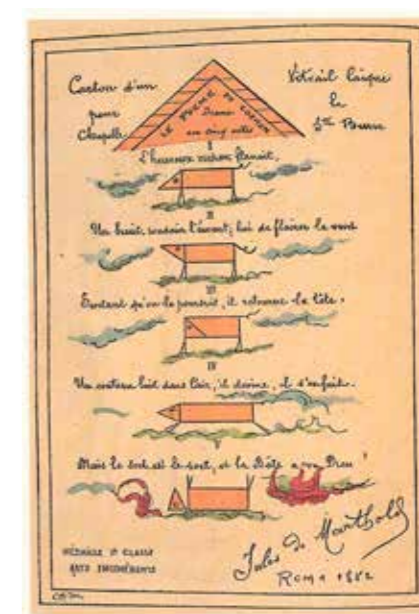 Carton d'un
pour
Chapelle
Vitrail laïque
la
Ste
LE POÈME DU COCHON
Drame
en cinq actes
I
L'heureux cochon flânait.
II
Un bruit, soudain l'émeut; lui de flairer le vent
III
Sentant qu'on le poursuit, il retourne la tête.
IV
Un couteau luit dans l'air, il devine, il s'enfuit.
Mais le sort est le sort, et la Bête a vu Dieu!
MÉDAILLE CLASSE
ARTS INCOHÉRENTS
Jules de Marthold
ROMA 1882